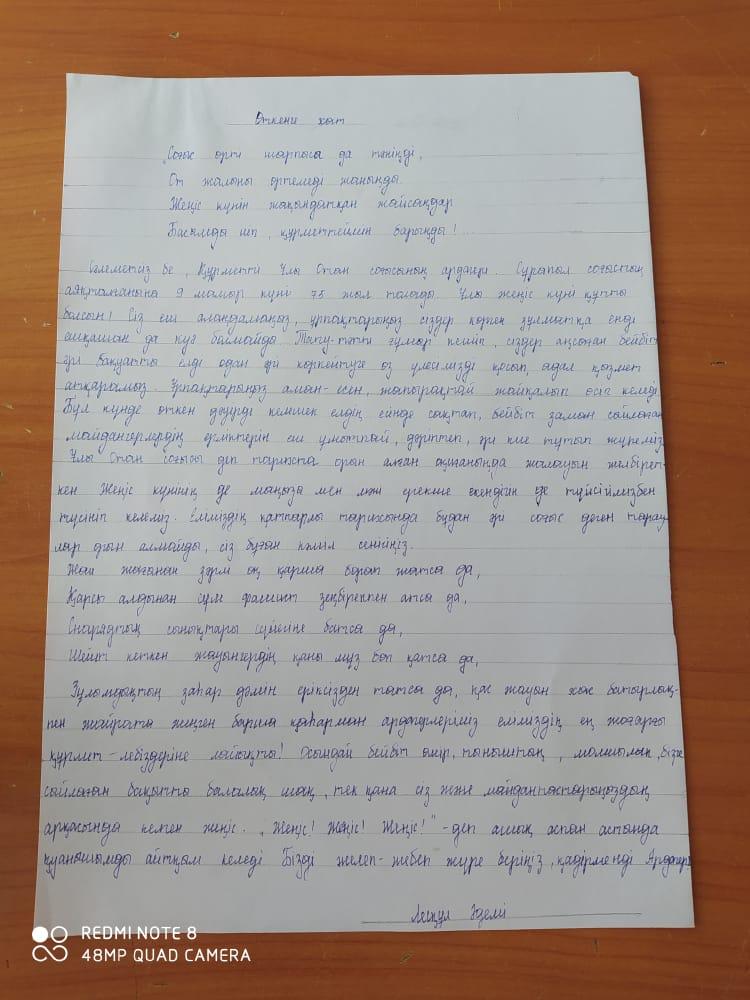 Өткенге хат
"Соғыс өрті шарпыса да тініңді,
От жалыны өртемеді жаныңды.
Жеңіс күнін жақындатқан жайсаңдар
Басымды иіп, құрметтеймін барыңды!
Сәлеметсіз бе, Құрметті Ұлы Отан соғысының ардагері. Сұрапыл соғыстың
аяқталғанына 9 мамыр күні 75 жыл толады. Ұлы жеңіс күні құтты
болсын! Сіз еш алаңдамаңыз, ұрпақтарыңыз сіздер көрген зұлматқа енді
ешқашан да куә болмайды. Тату-тәтті ғұмыр кешіп, сіздер аңсаған бейбіт
әрі бақуатты елді одан әрі көркейтуге өз үлесімізді қосып, адал қызмет
атқарамыз. Ұрпақтарыңыз аман-есен, жапырақтай жайқалып өсіп келеді.
Бұл күнде өткен дәуірді кемшек елдің есінде сақтап, бейбіт заман сыйлаған
майдангерлердің ерліктерін еш ұмытпай, дәріптеп, әрі кие тұтып жүреміз.
Ұлы Отан соғысы деп тарихта орын алған ақтаңында жалауын желбірет-
кен Жеңіс күнінің де маңызы мен мәні ерекше екендігін де түйсігімізбен
түсініп келеміз. Еліміздің қатпарлы тарихында бұдан әрі соғыс деген тарау-
лар орын алмайды, сіз бұған кәміл сеніңіз.
Жан жағынан зәрлі оқ қарша борап жатса да,
Қарсы алдынан сұм фашист зеңбірекпен атса да,
Снарядтың сынықтары сүйегіне батса да,
Шейіт кеткен жауынгердің қаны мұз боп қатса да,
Зұлымдықтың заһар дәмін еріксізден татса да, қас жауын көк батырлық-
пен жайрата жеңген барша қаһарман ардагерлеріміз еліміздің ең жоғарғы
құрмет-лебіздеріне лайықты! Осындай бейбіт өмір, тыныштық, молшылық, бізге
сыйлаған бақытты балалық шақ, тек қана сіз және майдангастарыңыздың
арқасында келген жеңіс. "Жеңіс! Жеңіс! Жеңіс!" - деп ашық аспан астында
қуанышымды айтқым келеді Бізді желеп-жебеп жүре беріңіз, қадірменді Ардагер!
Әделі
REDMI NOTE 8
48MP QUAD CAMERA